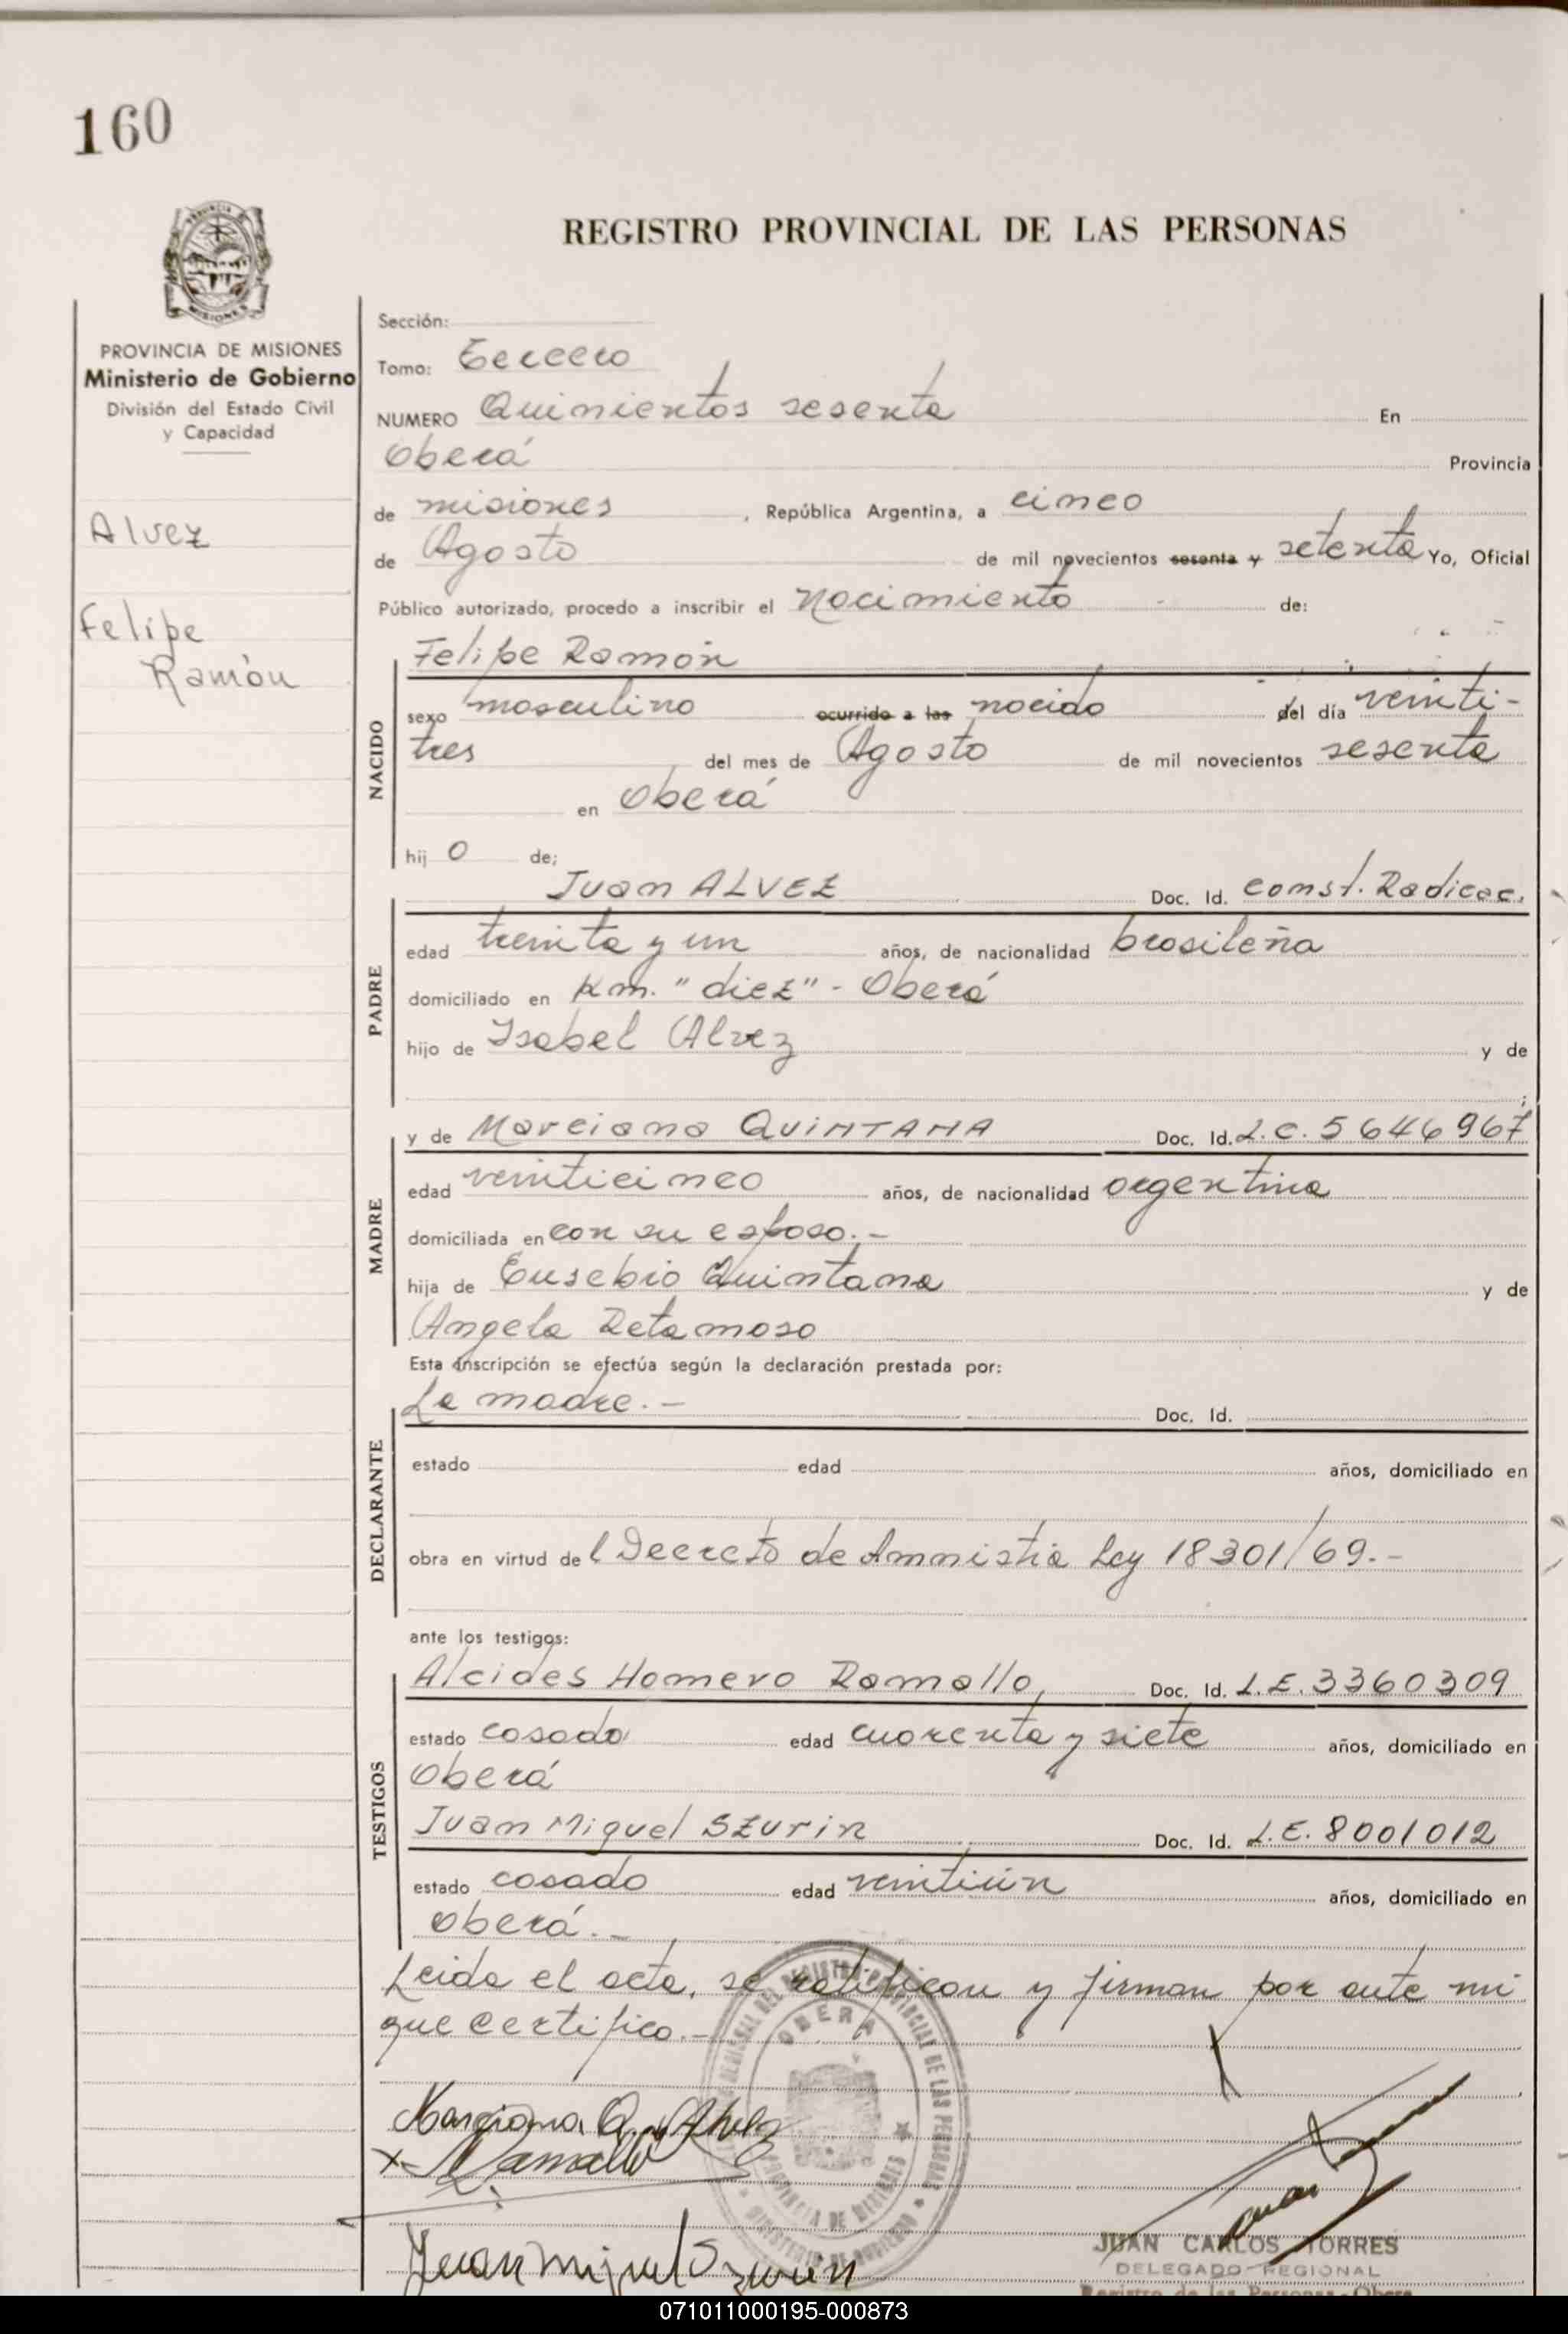 160
REGISTRO PROVINCIAL DE LAS PERSONAS
PROVINCIA DE MISIONES
Ministerio de Gobierno
División del Estado Civil
y Capacidad
Alvez
Felipe
Ramón
Sección:
Tomo: Tercero
NUMERO Quinientos sesenta En
Oberá Provincia
de misiones, República Argentina, a cinco
de Agosto de mil novecientos sesenta y setenta Yo, Oficial
Público autorizado, procedo a inscribir el nacimiento de:
NACIDO
Felipe Ramón
sexo masculino ocurrido a las nacido del día veinti-
tres del mes de Agosto de mil novecientos sesenta
en Oberá
hij o de;
PADRE
Juan ALVEZ Doc. Id. const. Radicac.
edad treinta y un años, de nacionalidad brasileña
domiciliado en Km. "diez" - Oberá
hijo de Isabel Alvez y de
;
MADRE
y de Marciana QUINTANA Doc. Id. L.C. 5646967
edad veinticinco años, de nacionalidad argentina
domiciliada en con su esposo.-
hija de Eusebio Quintana y de
Angela Retamoso
Esta inscripción se efectúa según la declaración prestada por:
DECLARANTE
La madre.- Doc. Id.
estado edad años, domiciliado en
obra en virtud de l Decreto de Amnistia Ley 18301/69.-
ante los testigos:
TESTIGOS
Alcides Homero Ramallo, Doc. Id. L.E. 3360309
estado casado edad cuarenta y siete años, domiciliado en
Oberá
Juan Miguel SZURIN Doc. Id. L.E. 8001012
estado casado edad veintiún años, domiciliado en
Oberá.-
Leida el acta, se ratifican y firman por ante mi
que certifico.-
OBERA
PROVINCIA DE MISIONES
MINISTERIO DE GOBIERNO
Marciana Q. de
Ramallo
Juan Miguel Szurin
JUAN CARLOS TORRES
DELEGADO REGIONAL
Registro de las Personas - Obera
071011000195-000873